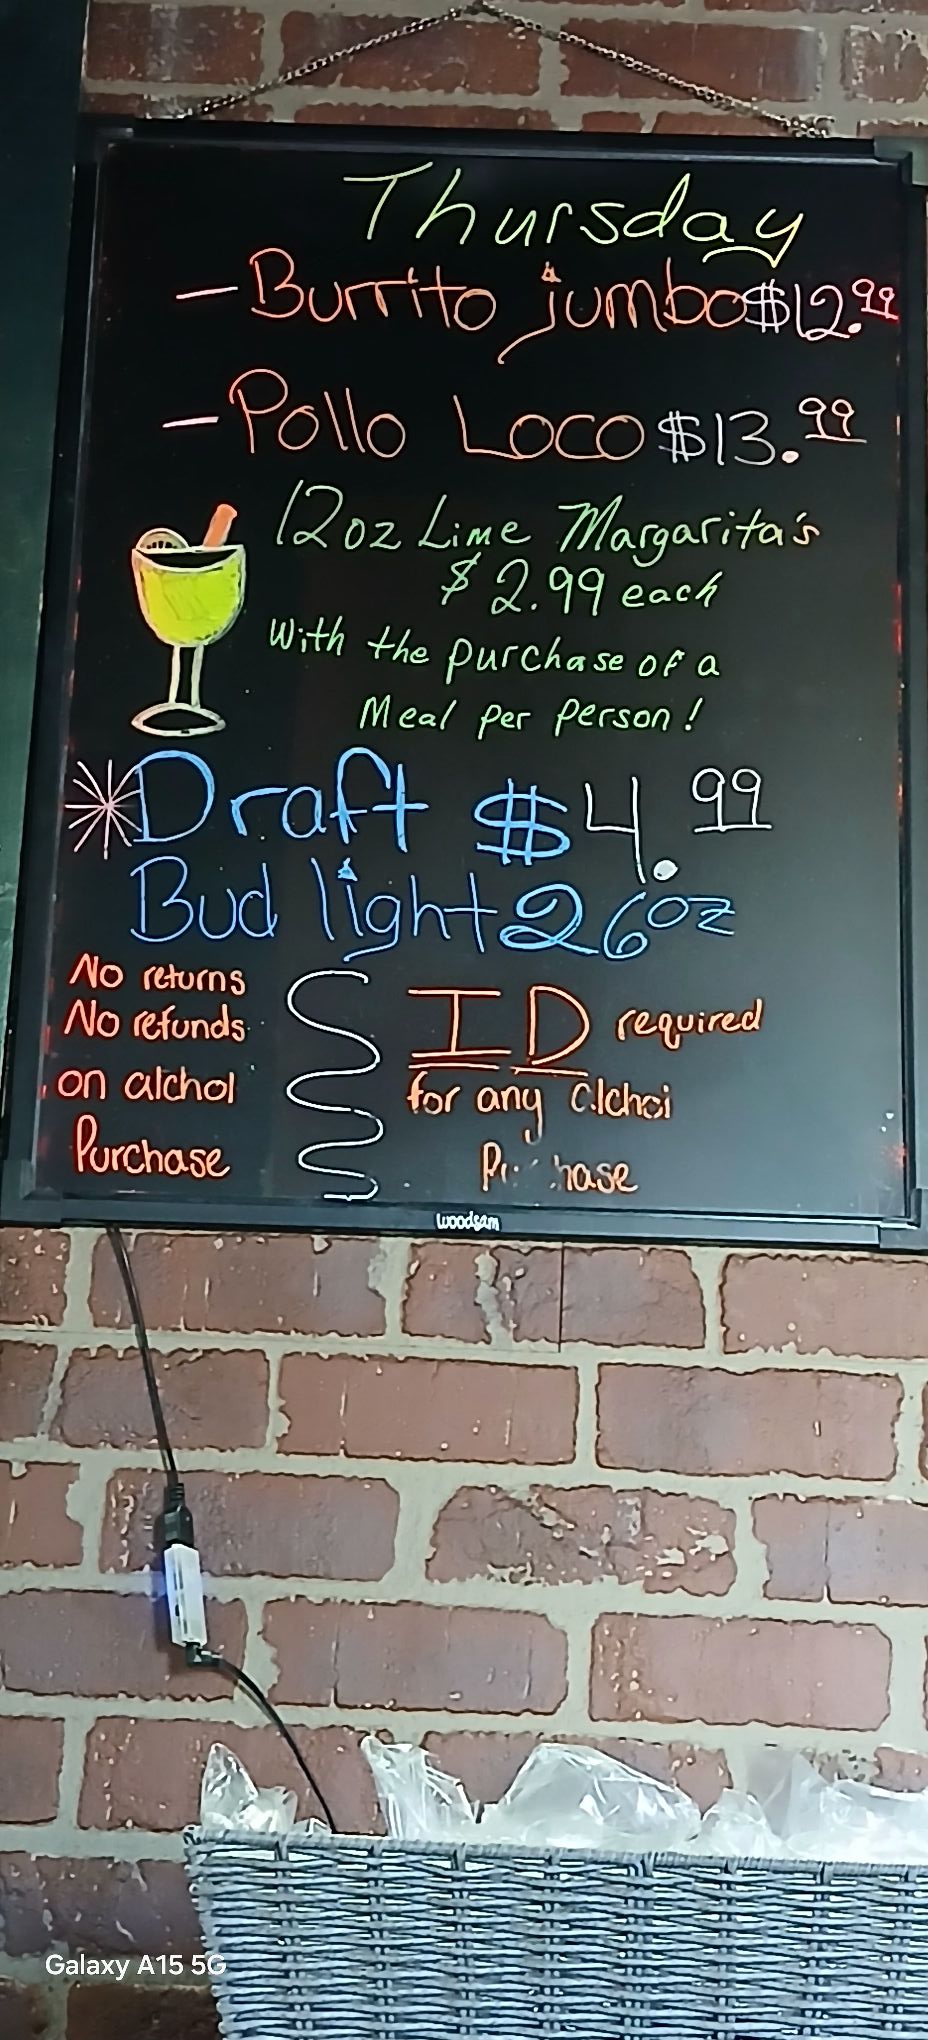 Thursday
- Burrito jumbo $12.99
- Pollo Loco $13.99
12oz Lime Margarita's
$2.99 each
with the purchase of a
Meal per person!
*Draft $4.99
Bud light 26oz
No returns
No refunds
on alchol
Purchase
ID required
for any
woodsam
Galaxy A15 5G